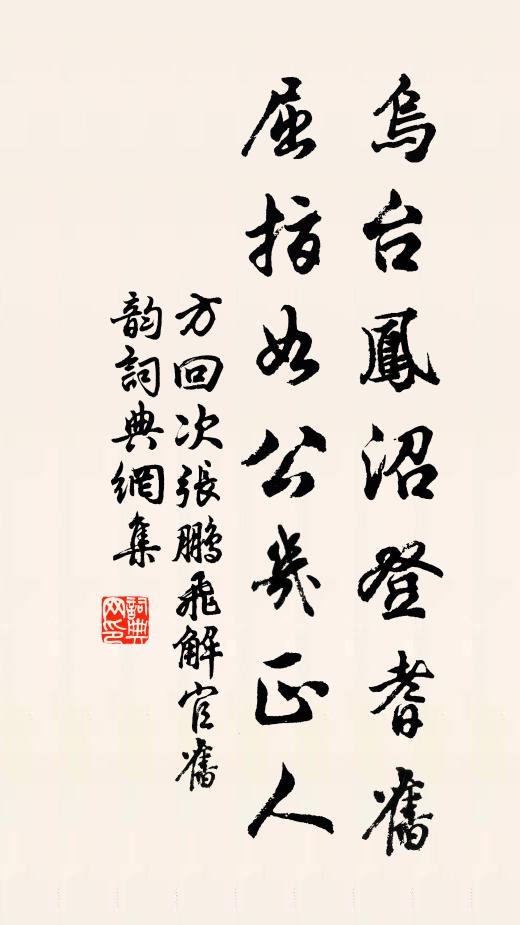 烏台鳳沼登耆舊
屈指如公幾正人
方回次張鵬飛解官舊
韵詞典網集
詞典
网印